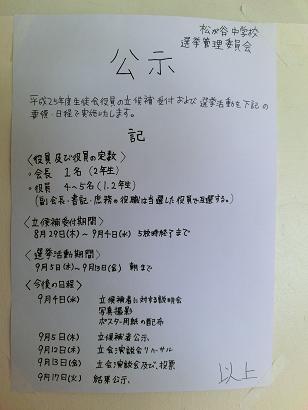 松が谷中学校
選挙管理委員会
公示
平成25年度生徒会役員の立候補受付および選挙活動を下記の
要領・日程で実施いたします。
記
〈役員及び役員の定数〉
・会長 1名(2年生)
・役員 4~5名(1.2年生)
(副会長・書記・庶務の役職は当選した役員で互選する。)
〈立候補受付期間〉
8月29日(木)~9月4日(水) 5校時終了まで
〈選挙活動期間〉
9月5日(木)~9月13日(金) 朝まで
〈今後の日程〉
9月4日(水) 立候補者に対する説明会
写真撮影
ポスター用紙の配布
9月5日(木) 立候補者公示
9月12日(木) 立会演説会リハーサル
9月13日(金) 立会演説会及び、投票
9月17日(火) 結果公示
以上